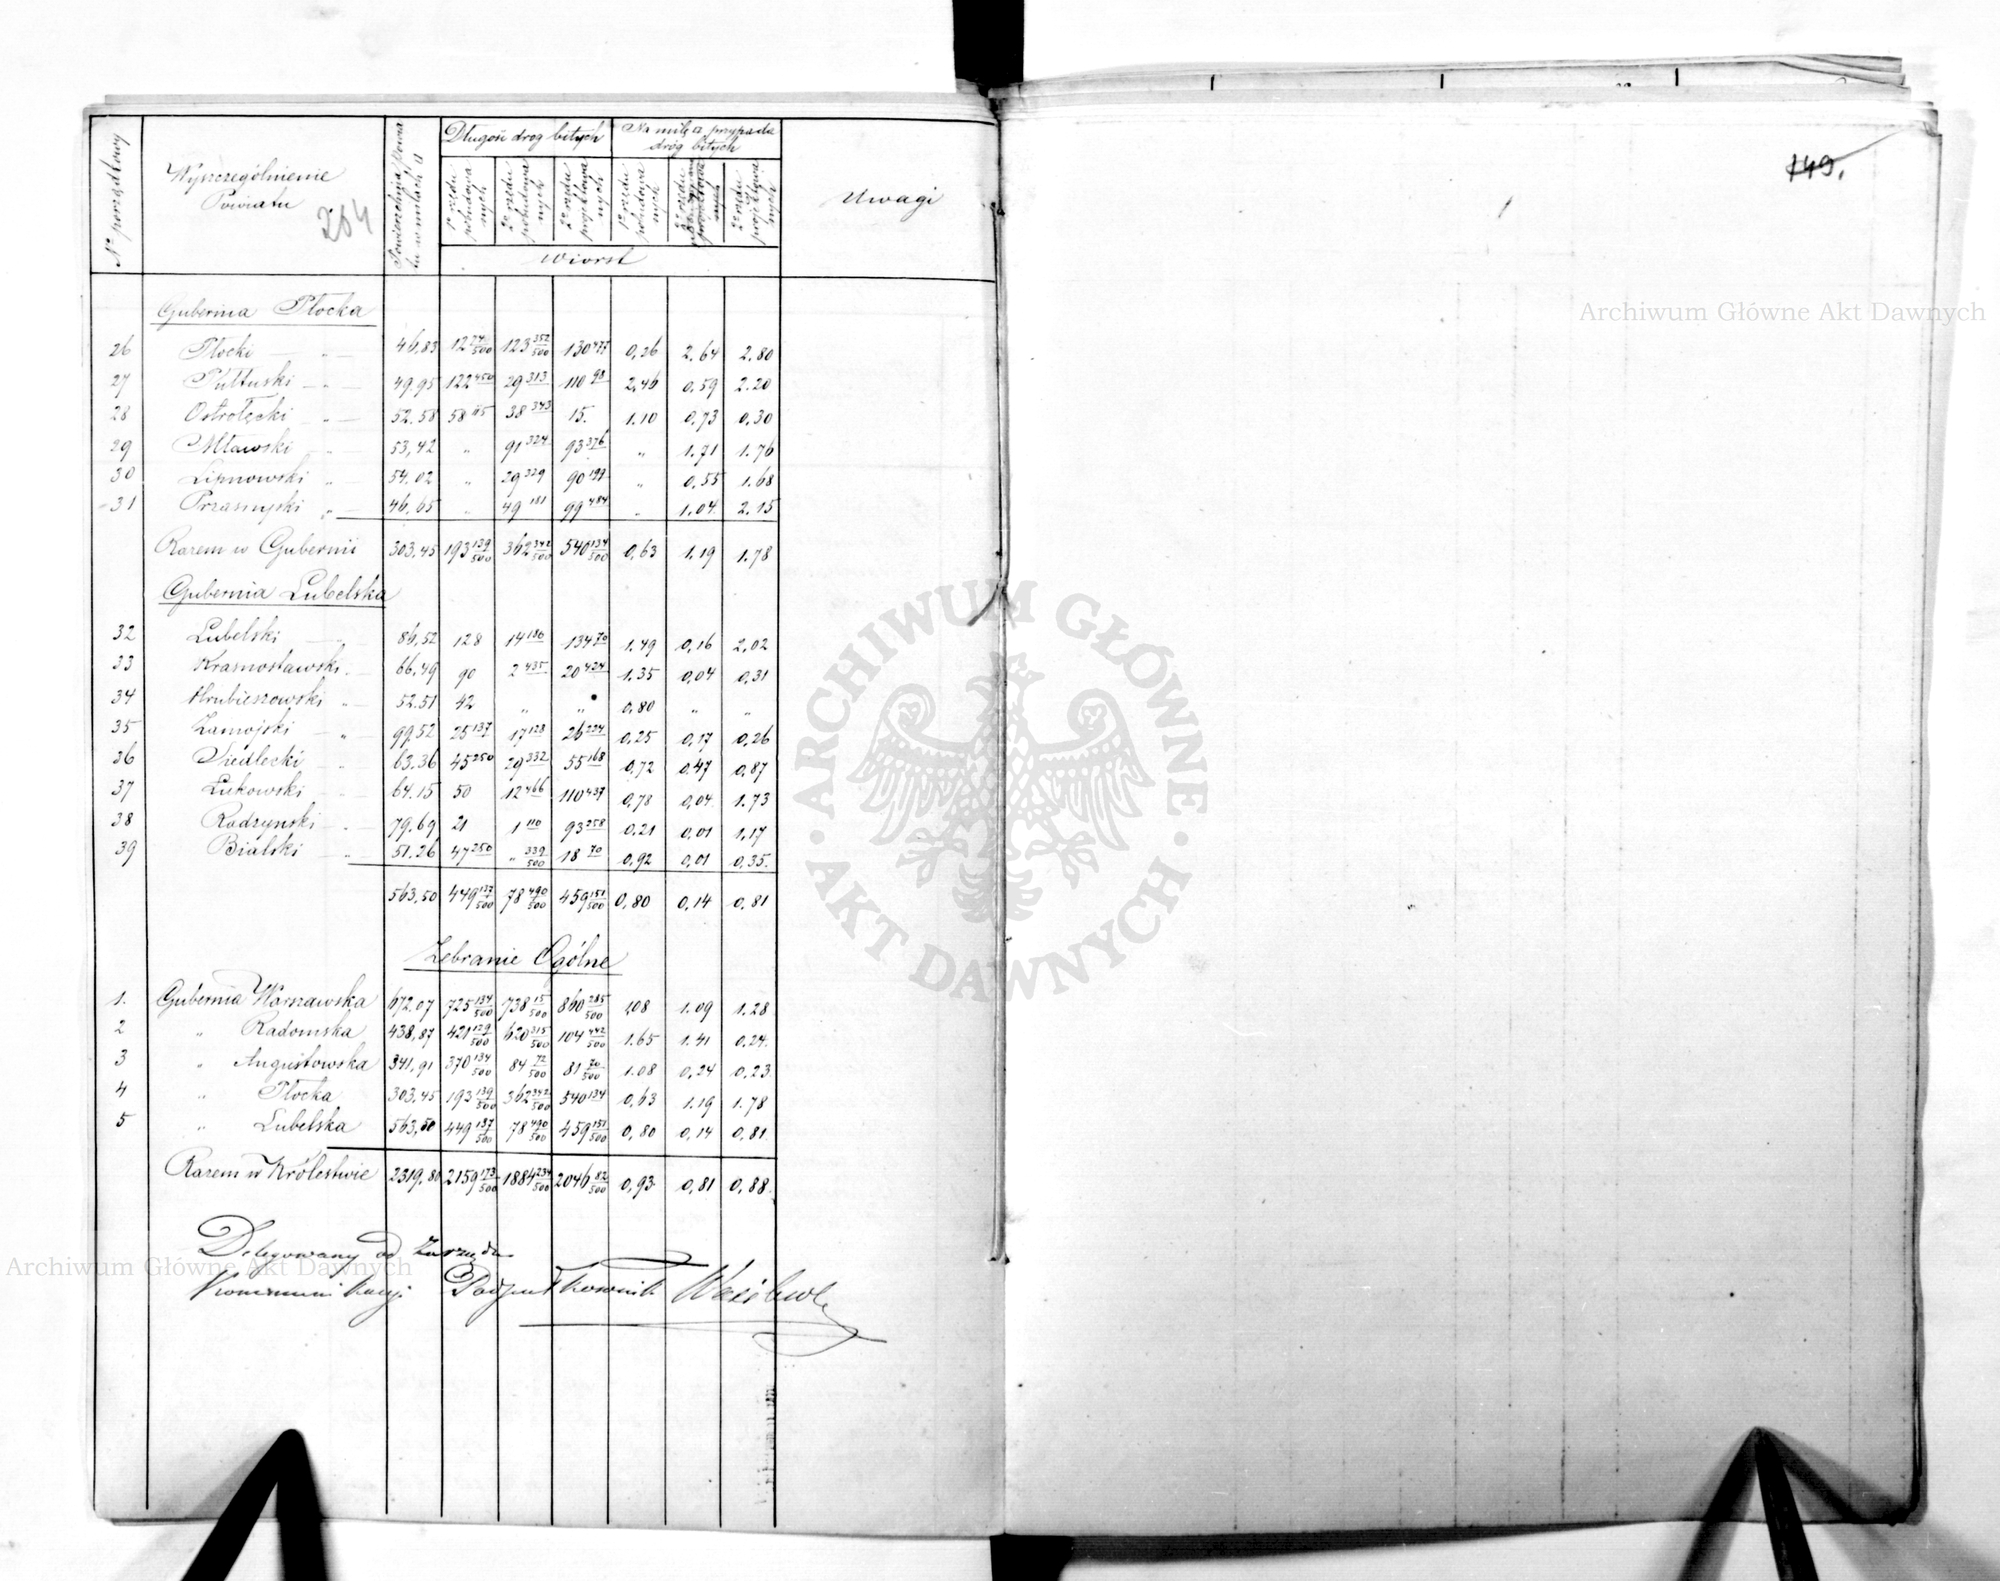 149.
Nº porządkowy | Wyszczególnienie Powiatu | Powierzchnia Powiatu w milach □ | Długość dróg bitych | Na milę □ przypada dróg bitych | Uwagi
254
1º rzędu pobudowanych | 2º rzędu pobudowanych | 2º rzędu projektowanych | 1º rzędu pobudowanych | 2º rzędu | 2º rzędu projektowanych
Wiorst
Gubernia Płocka
26 Płocki 46,83 12 74/500 123 352/500 130 477 0,26 2.64 2.80
27 Pułtuski 49,95 122 450 29 313 110 98 2,46 0,59 2.20
28 Ostrołęcki 52.58 58 115 38 343 15. 1.10 0,73 0,30
29 Mławski 53,42 " 91 324 93 376 " 1.71 1.76
30 Lipnowski 54.02 " 29 329 90 199 " 0,55 1.68
31 Przasnyski 46.65 " 49 181 99 484 " 1,04 2.15
Razem w Gubernii 303.45 193 139/500 362 342/500 540 134/500 0,63 1.19 1.78
Gubernia Lubelska
32 Lubelski 86,52 128 14 186 134 70 1.49 0,16 2,02
33 Krasnostawski 66,49 90 2 435 20 424 1.35 0,04 0,31
34 Hrubieszowski 52.51 42 " " 0,80 " "
35 Zamojski 99,52 25 137 17 128 26 224 0,25 0,17 0,26
36 Siedlecki 63.36 45 250 29 332 55 168 0,72 0.47 0,87
37 Łukowski 64.15 50 12 466 110 437 0,78 0,04 1.73
38 Radzynski 79.69 21 1 110 93 258 0,21 0,01 1,17
39 Bialski 51.26 47 250 " 339/500 18 70 0,92 0,01 0,35.
563,50 449 137/500 78 490/500 459 151/500 0,80 0,14 0,81
Zebranie Ogólne
1. Gubernia Warszawska 672,07 725 134/500 738 15/500 860 285/500 1,08 1.09 1.28
2 " Radomska 438,87 421 129/500 620 315/500 104 442/500 1.65 1.41 0,24
3 " Augustowska 341,91 370 134/500 84 72/500 81 70/500 1.08 0,24 0,23
4 " Płocka 303,45 193 139/500 362 342/500 540 134 0,63 1.19 1.78
5 " Lubelska 563,50 449 137/500 78 490/500 459 151/500 0,80 0,14 0,81
Razem w Królestwie 2319,80 2159 173/500 1884 234/500 2046 82/500 0,93 0,81 0,88.
Delegowany od Zarządu
Kommunikacyi Podpułkownik
Archiwum Główne Akt Dawnych
Archiwum Główne Akt Dawnych
ARCHIWUM GŁÓWNE · AKT DAWNYCH ·